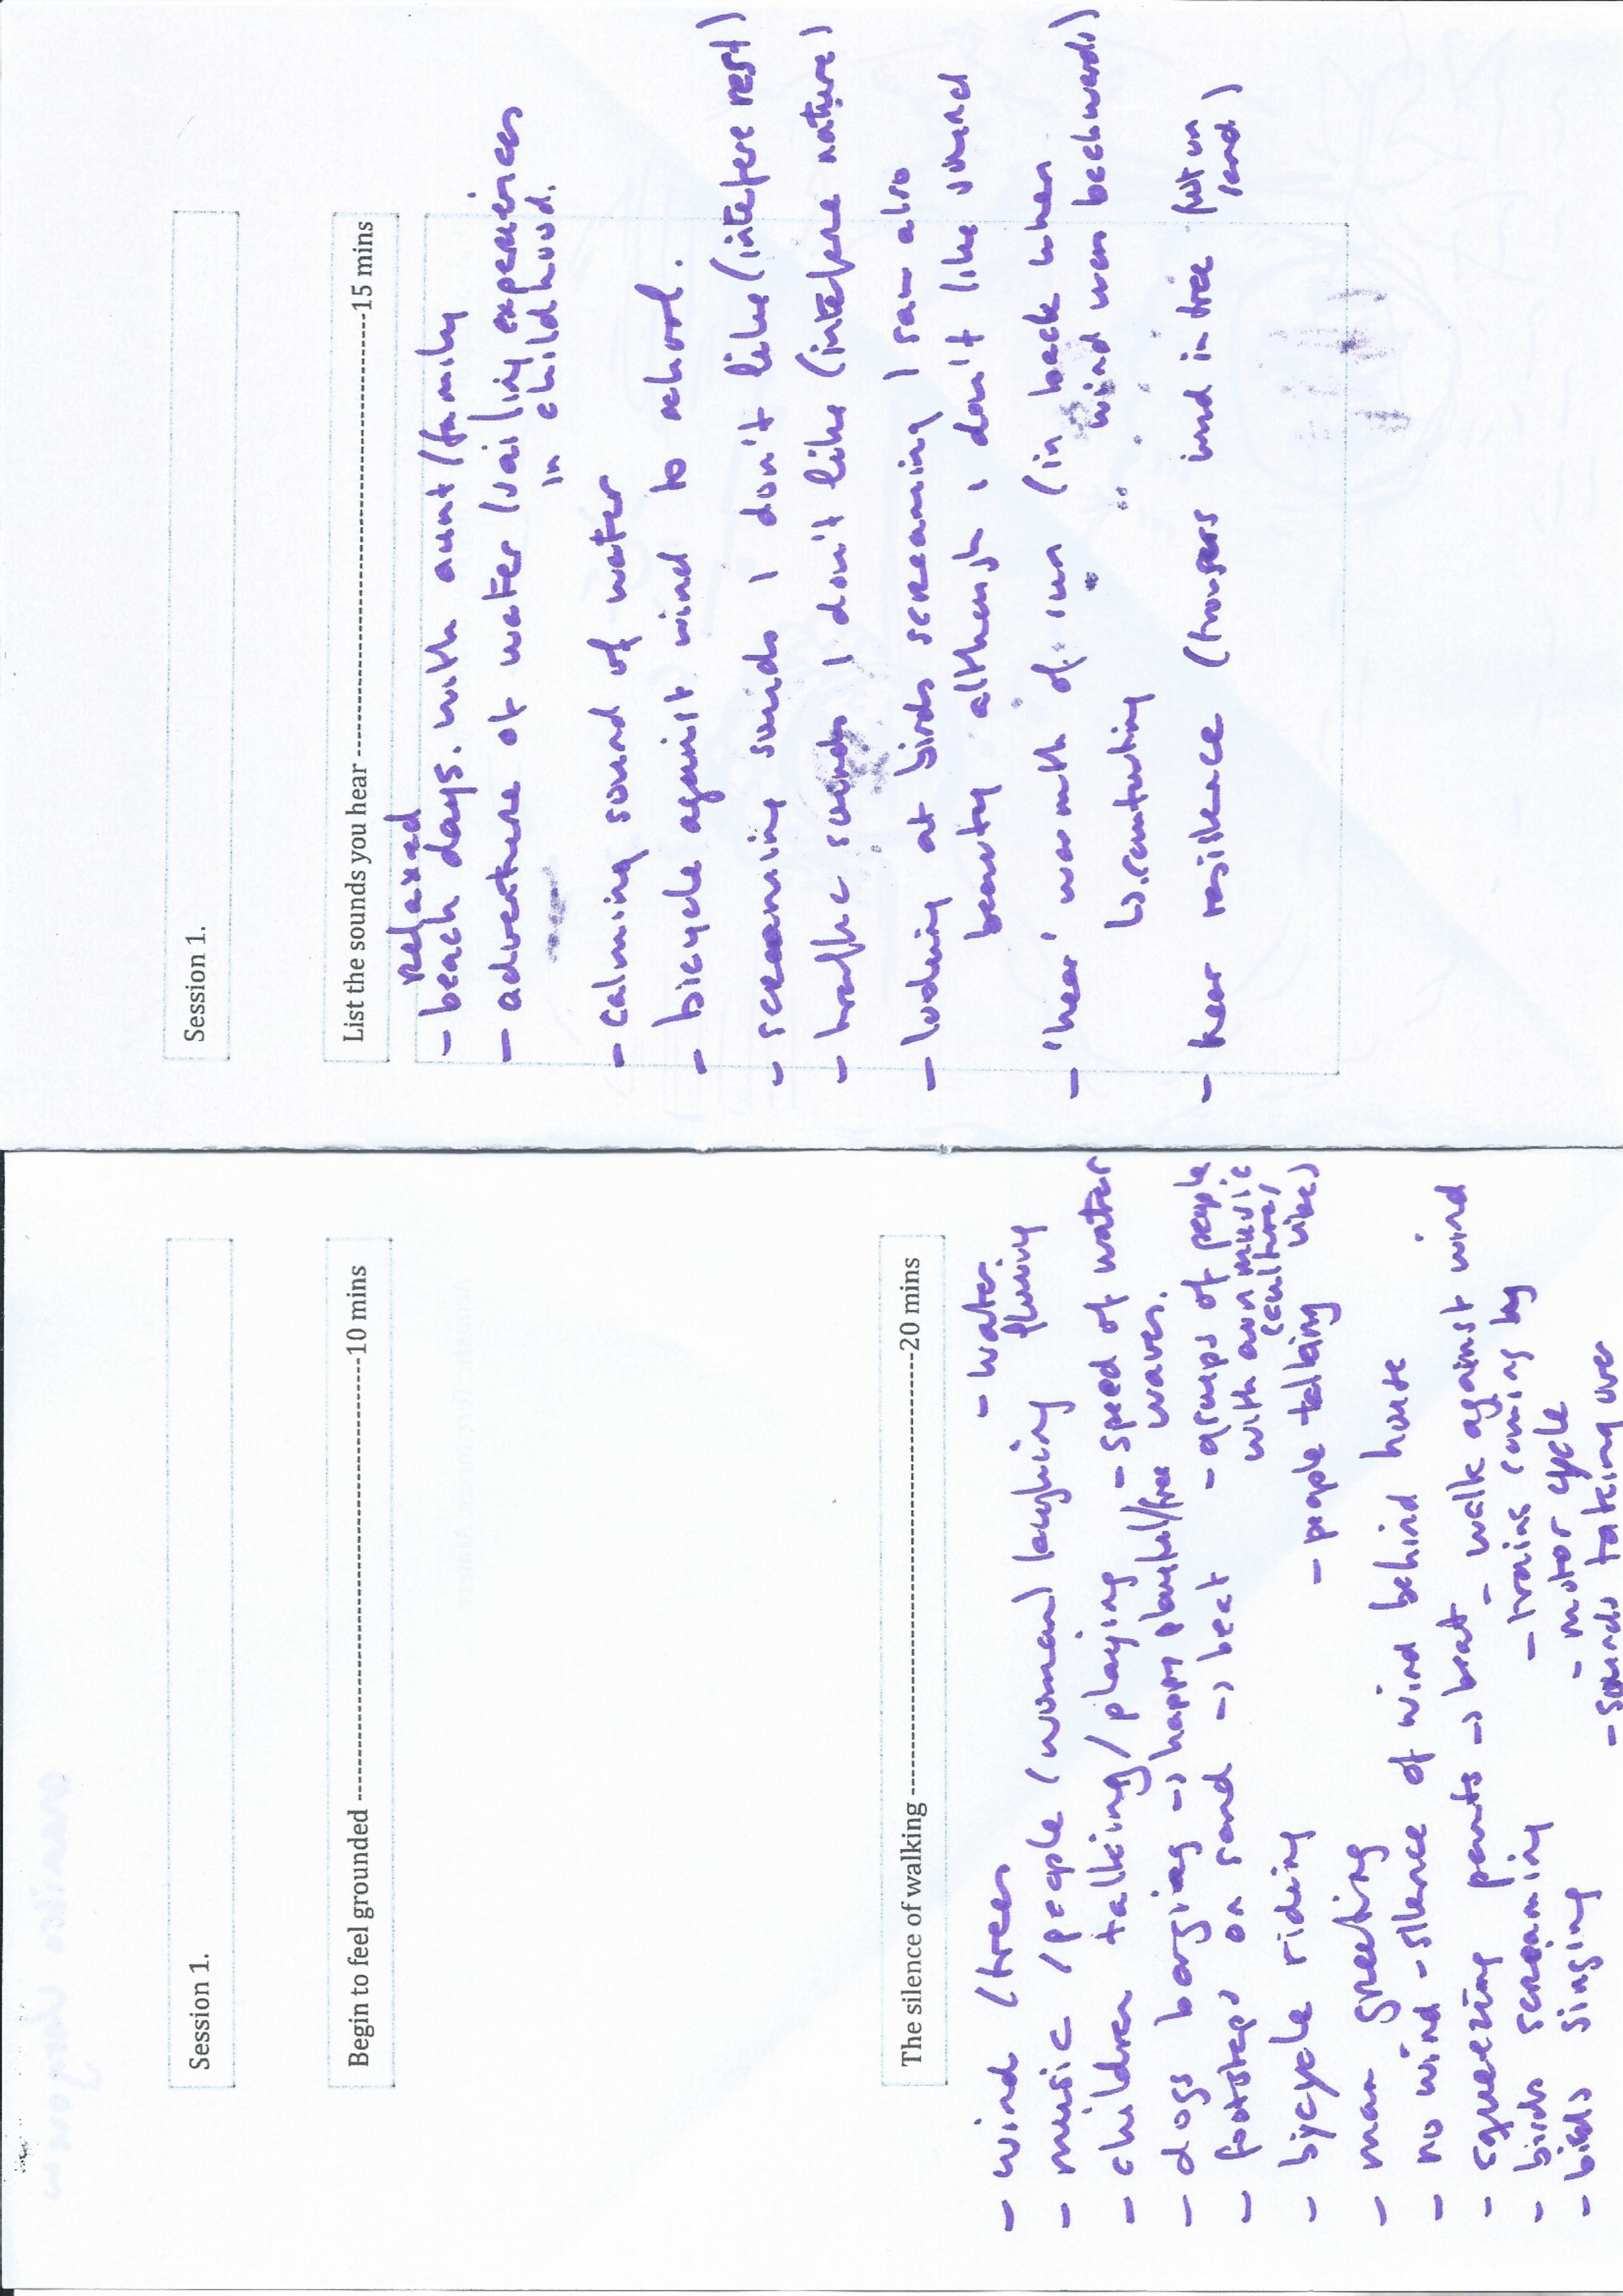 Session 1.
Begin to feel grounded ----------------------------------------10 mins
The silence of walking ----------------------------------------20 mins
- wind / trees
- water flowing
- music / people / woman laughing
- children talking / playing
- speed of water waves.
- dogs barging → happy playful/free
- footsteps on sand → beat
- groups of people with own music (culture/ vibe)
- bicycle riding
- people talking
- man greeting
- no wind - silence of wind behind house
- squeezing pants → brat
- walk against wind
- birds screaming
- trains coming by
- birds singing
- motor cycle
- sounds taking over
Session 1.
List the sounds you hear ----------------------------------------15 mins
relaxed
- beach days. with aunt / family
- adventure at water (sailing experiences
in childhood.
- calming sound of water
- bicycle against wind to school.
- screaming sounds I don't like (intefere rest)
- traffic sounds I don't like (intefere nature)
- looking at birds screaming I saw also
beauty although i don't like sound
- 'hear' warmth of sun (in back when
wind was backwards)
- hear resilience (trompers wind in tree (sit on
sand)